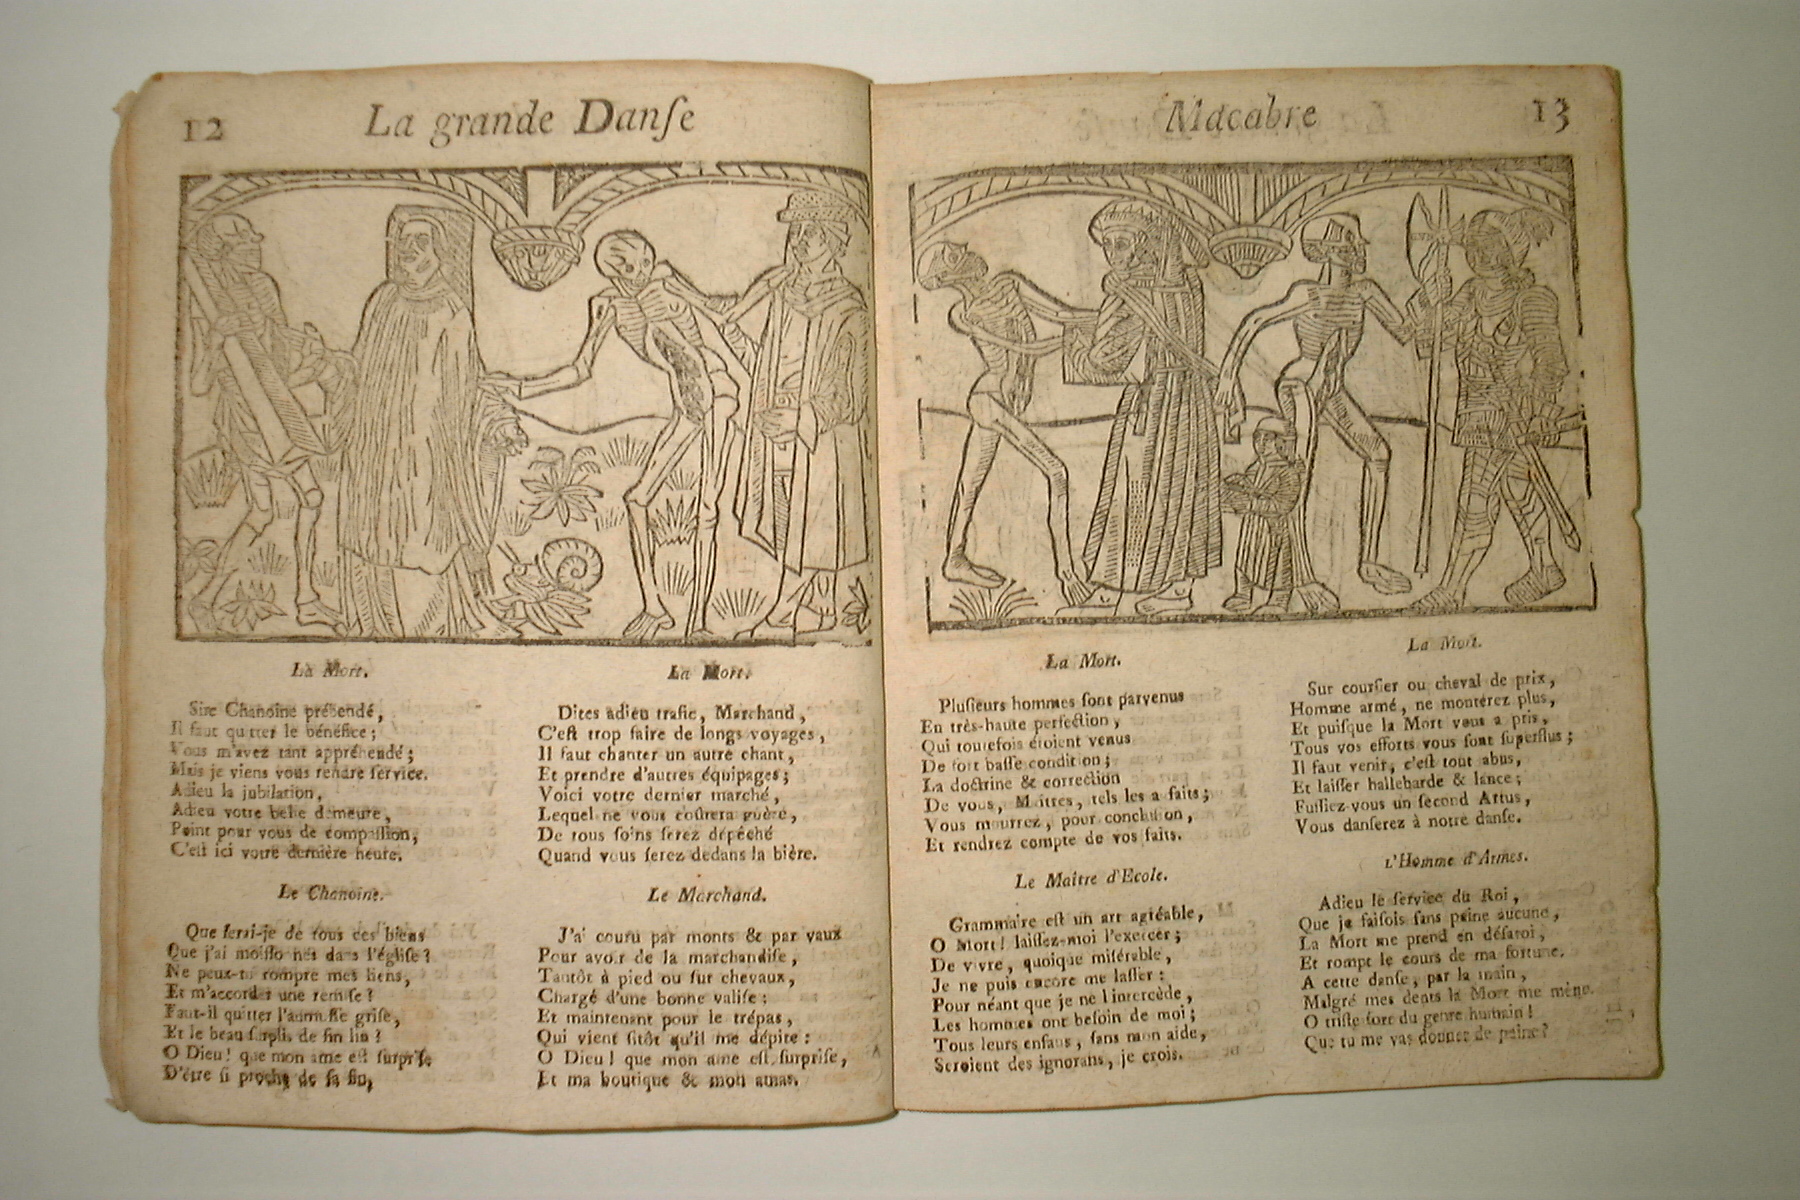 12
La grande Danſe
La Mort.
Sire Chanoine prébendé,
Il faut quitter le bénéfice;
Vous m'avez tant appréhendé;
Mais je viens vous rendre ſervice.
Adieu la jubilation,
Adieu votre belle demeure,
Point pour vous de compaſſion,
C'eſt ici votre dernière heure.
Le Chanoine.
Que ferai-je de tous ces biens
Que j'ai moiſſonnés dans l'égliſe?
Ne peux-tu rompre mes liens,
Et m'accorder une remiſe?
Faut-il quitter l'aumuſſe griſe,
Et le beau ſurplis de fin lin?
O Dieu! que mon ame eſt ſurpriſe
D'être ſi proche de ſa fin,
La Mort.
Dites adieu trafic, Marchand,
C'eſt trop faire de longs voyages,
Il faut chanter un autre chant,
Et prendre d'autres équipages;
Voici votre dernier marché,
Lequel ne vous coûtera guère,
De tous ſoins ſerez dépêché
Quand vous ſerez dedans la bière.
Le Marchand.
J'ai couru par monts & par vaux
Pour avoir de la marchandiſe,
Tantôt à pied ou ſur chevaux,
Chargé d'une bonne valiſe;
Et maintenant pour le trépas,
Qui vient ſitôt qu'il me dépite:
O Dieu! que mon ame eſt ſurpriſe,
Et ma boutique & mon amas.
Macabre
13
La Mort.
Pluſieurs hommes ſont parvenus
En très-haute perfection,
Qui toutefois étoient venus
De fort baſſe condition;
La doctrine & correction
De vous, Maîtres, tels les a faits;
Vous mourrez, pour concluſion,
Et rendrez compte de vos faits.
Le Maître d'Ecole.
Grammaire eſt un art agréable,
O Mort! laiſſez-moi l'exercer;
De vivre, quoique miſérable,
Je ne puis encore me laſſer:
Pour néant que je ne l'intercède,
Les hommes ont beſoin de moi;
Tous leurs enfans, ſans mon aide,
Seroient des ignorans, je crois.
La Mort.
Sur courſier ou cheval de prix,
Homme armé, ne monterez plus,
Et puiſque la Mort vous a pris,
Tous vos efforts vous ſont ſuperflus;
Il faut venir, c'eſt tout abus,
Et laiſſer hallebarde & lance;
Fuſſiez-vous un ſecond Artus,
Vous danſerez à notre danſe.
L'Homme d'Armes.
Adieu le ſervice du Roi,
Que je faiſois ſans peine aucune,
La Mort me prend en déſaroi,
Et rompt le cours de ma fortune.
A cette danſe, par la main,
Malgré mes dents la Mort me mène.
O triſte ſort du genre humain!
Que tu me vas donner de peine?